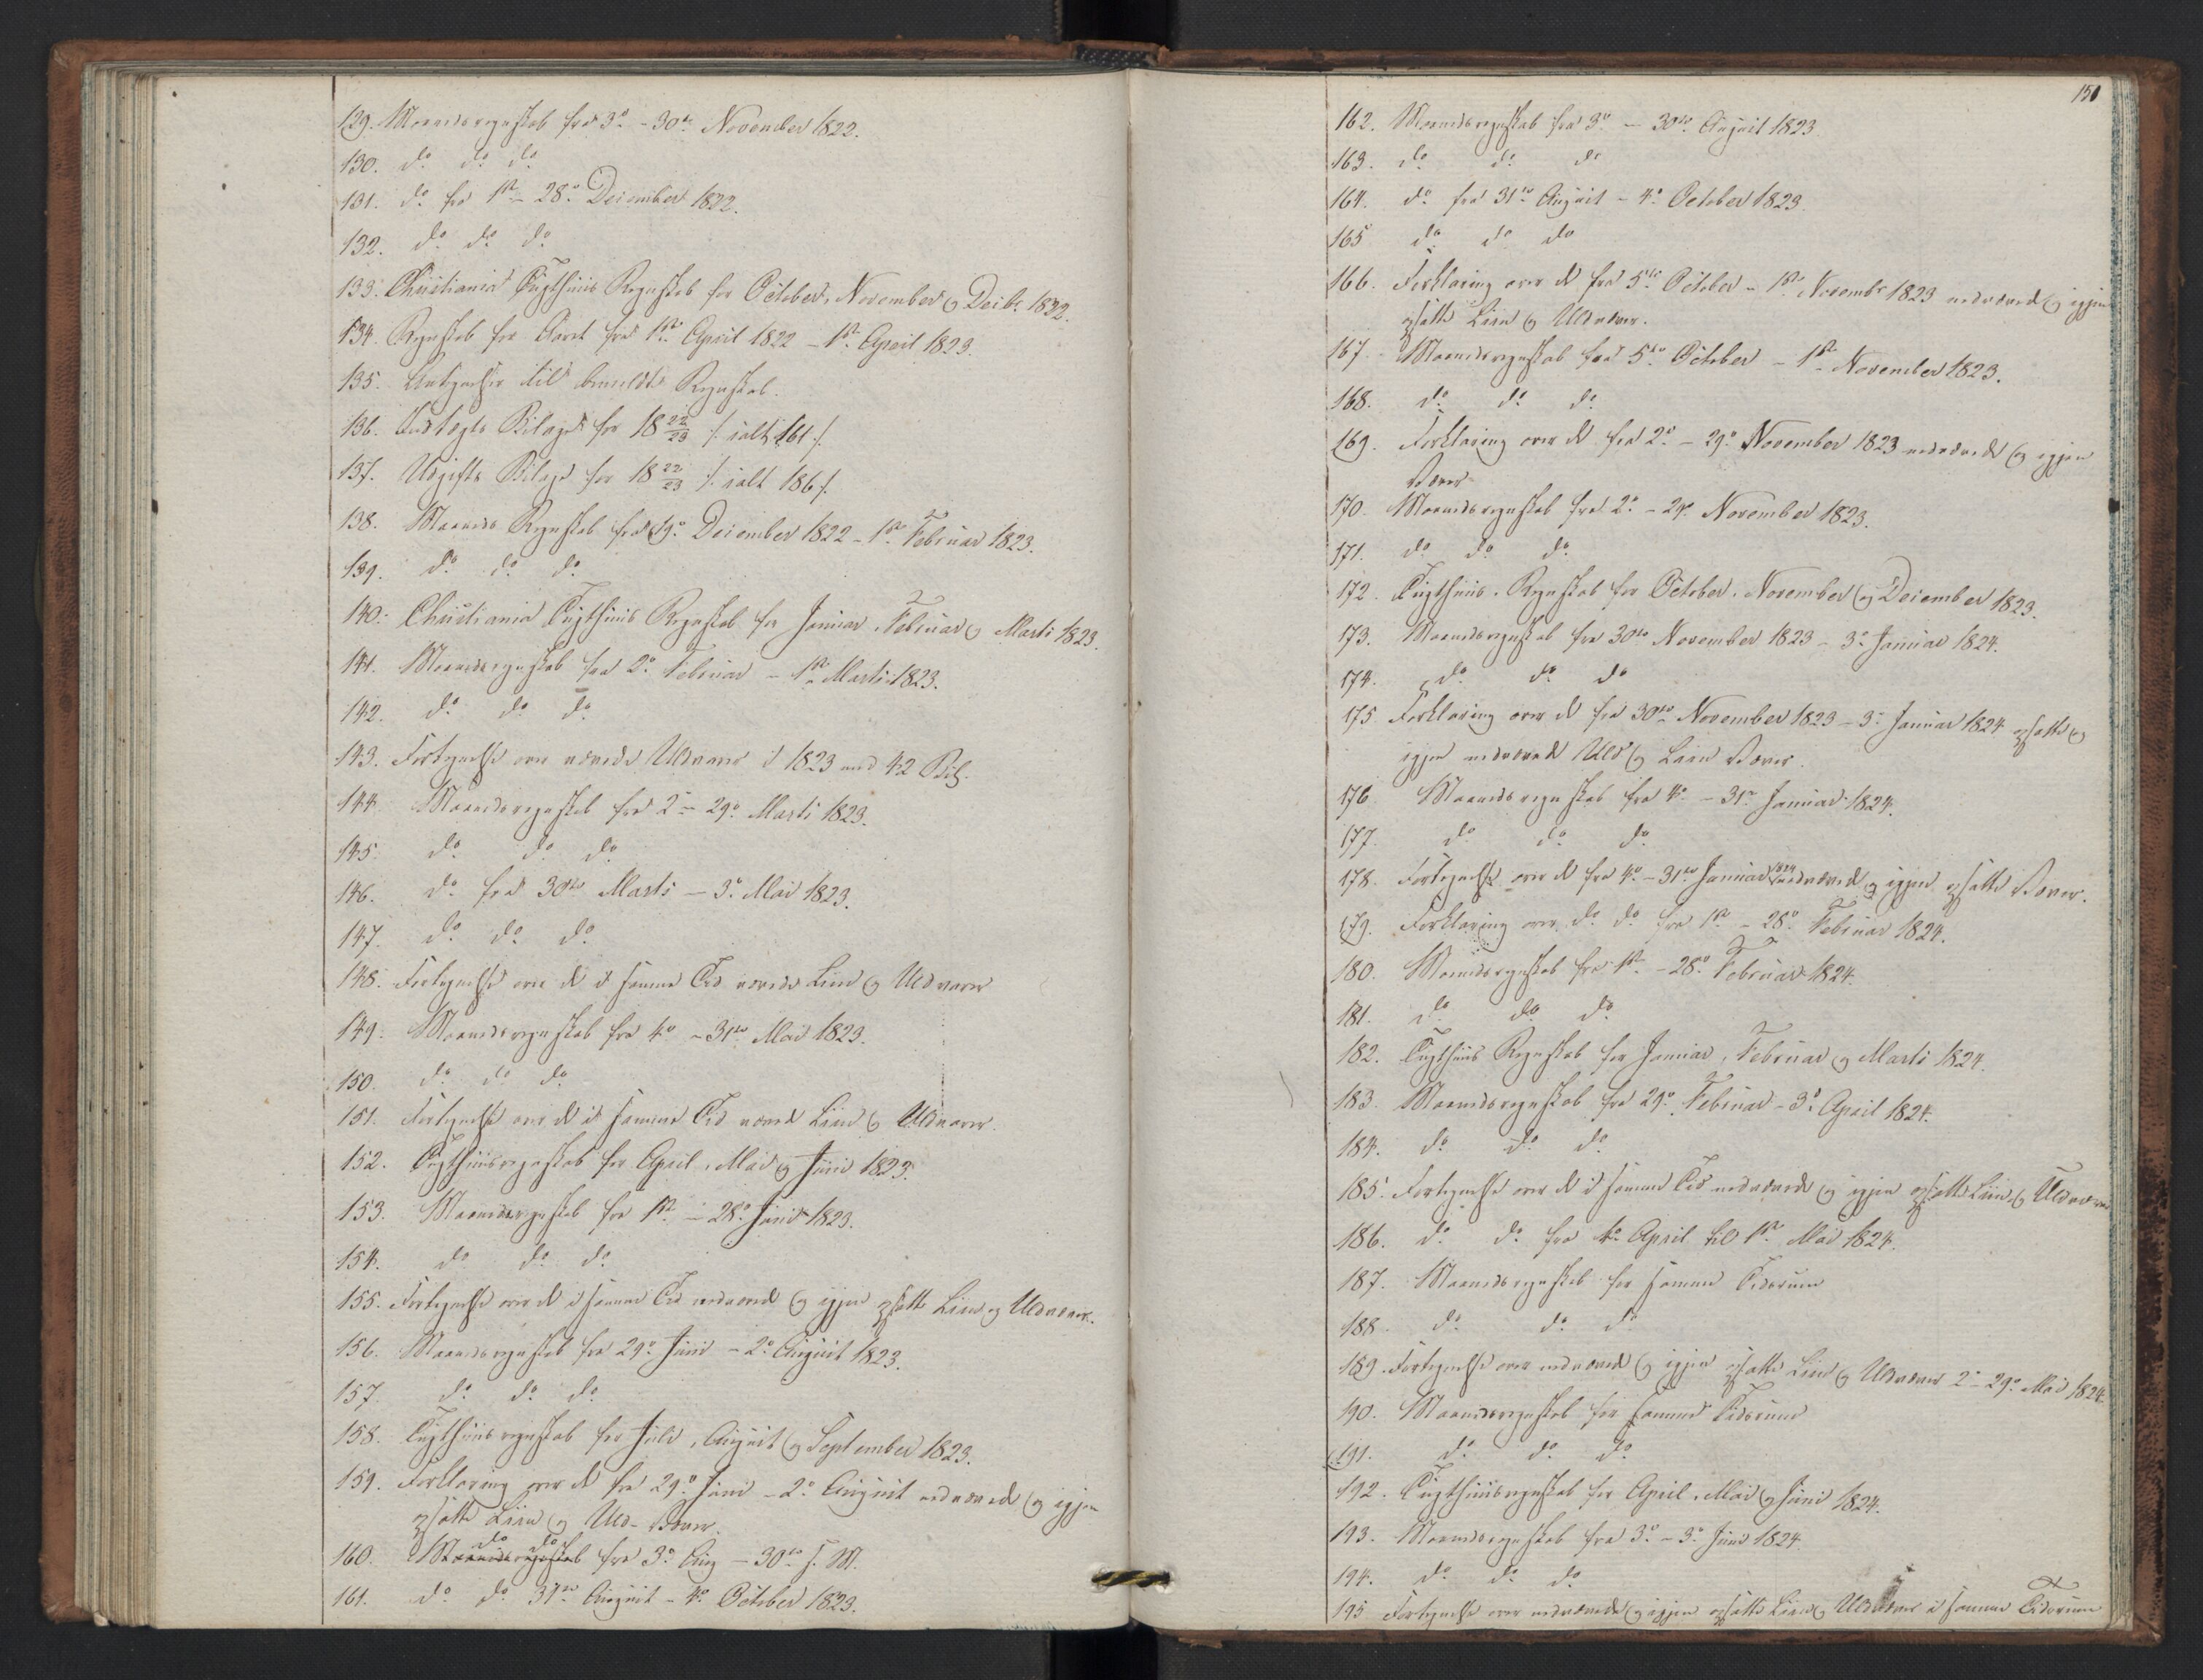 129. Maanedsregnskab fra 3die - 30te November 1822.
130. do do do
131. do fra 1ste - 28de December 1822.
132. do do do
133. Christiania Tugthuus Regnskab for October, November og Decbr. 1822.
134. Regnskab for Aaret fra 1ste April 1822 - 1ste April 1823.
135. Antegnelser til bemeldte Regnskab.
136. Indtægts Bilage for 18 22/23 /: ialt 161 :/
137. Udgifts Bilage for 18 22/23 /: ialt 186 :/
138. Maaneds Regnskab fra 29de December 1822 - 1ste Februar 1823.
139. do do do
140. Christiania Tugthuus Regnskab for Januar, Februar og Marts 1823.
141. Maanedsregnskab fra 2den Februar - 1ste Marts 1823.
142. do do do
143. Fortegnelse over vævede Uldvarer i 1823 med 42 Bil.
144. Maanedsregnskab fra 2den - 29de Marts 1823.
145. do do do
146. do fra 30te Marts - 3die Mai 1823.
147. do do do
148. Fortegnelse over de i samme Tid vævede Liin og Uldvarer
149. Maanedsregnskab fra 4de - 31te Mai 1823.
150. do do do
151. Fortegnelse over de i samme Tid vævede Liin og Uldvarer.
152. Tugthuusregnskab for April, Mai og Juni 1823.
153. Maanedsregnskab fra 1ste - 28de Juni 1823.
154. do do do
155. Fortegnelse over de i samme Tid nedvævede og igjen opsatte Liin og Uldvæver.
156. Maanedsregnskab fra 29de Juni - 2den August 1823.
157. do do do
158. Tugthuusregnskab for Juli, August og September 1823.
159. Forklaring over de fra 29de Juni - 2den August nedvævede og igjen
opsatte Liin og Uld-Væver.
160. do do fra 3die Aug - 30te s. M.
161. do do 31te August - 4de October 1823.
150
162. Maanedsregnskab fra 3die - 30te August 1823.
163. do do do
164. do fra 31te August - 4de October 1823.
165 do do do
166. Forklaring over de fra 5te October - 1ste Novembr 1823 nedvævede og igjen
opsatte Liin og Uldvæver.
167. Maanedsregnskab fra 5te October - 1ste November 1823.
168. do do do
169. Forklaring over de fra 2den - 29de November 1823 nedvævede og igjen
Væver
170. Maanedsregnskab fra 2den - 29de November 1823.
171. do do do
172. Tugthuus-Regnskab for October, November og December 1823.
173. Maanedsregnskab fra 30te November 1823 - 3die Januar 1824.
174. do do do
175 Forklaring over de fra 30te November 1823 - 3die Januar 1824 opsatte og
igjen nedvævede Uld og Liin Væver.
176 Maanedsregnskab fra 4de - 31te Januar 1824.
177. do do do
178. Fortegnelse over de fra 4de - 31te Januar 1824 nedvævede og igjen opsatte Væver.
179. Forklaring over do do fra 1ste - 28de Februar 1824.
180. Maanedsregnskab fra 1ste - 28de Februar 1824.
181. do do do
182. Tugthuus Regnskab for Januar, Februar og Marts 1824.
183. Maanedsregnskab fra 29de Februar - 3die April 1824.
184. do do do
185. Fortegnelse over de i samme Tid nedvævede og igjen opsatte Liin og Uldvæver
186. do do fra 4de April til 1ste Mai 1824.
187. Maanedsregnskab for samme Tidsrum
188 do do do
189. Fortegnelse over nedvævede og igjen opsatte Liin og Uldvæver 2den - 29de Mai 1824.
190. Maanedsregnskab for samme Tidsrum
191. do do do
192. Tugthuusregnskab for April, Mai og Juni 1824.
193. Maanedsregnskab fra 3die - 3die Juni 1824.
194. do do do
195 Fortegnelse over nedvævede og igjen opsatte Liin og Uldvæver i samme Tidsrum